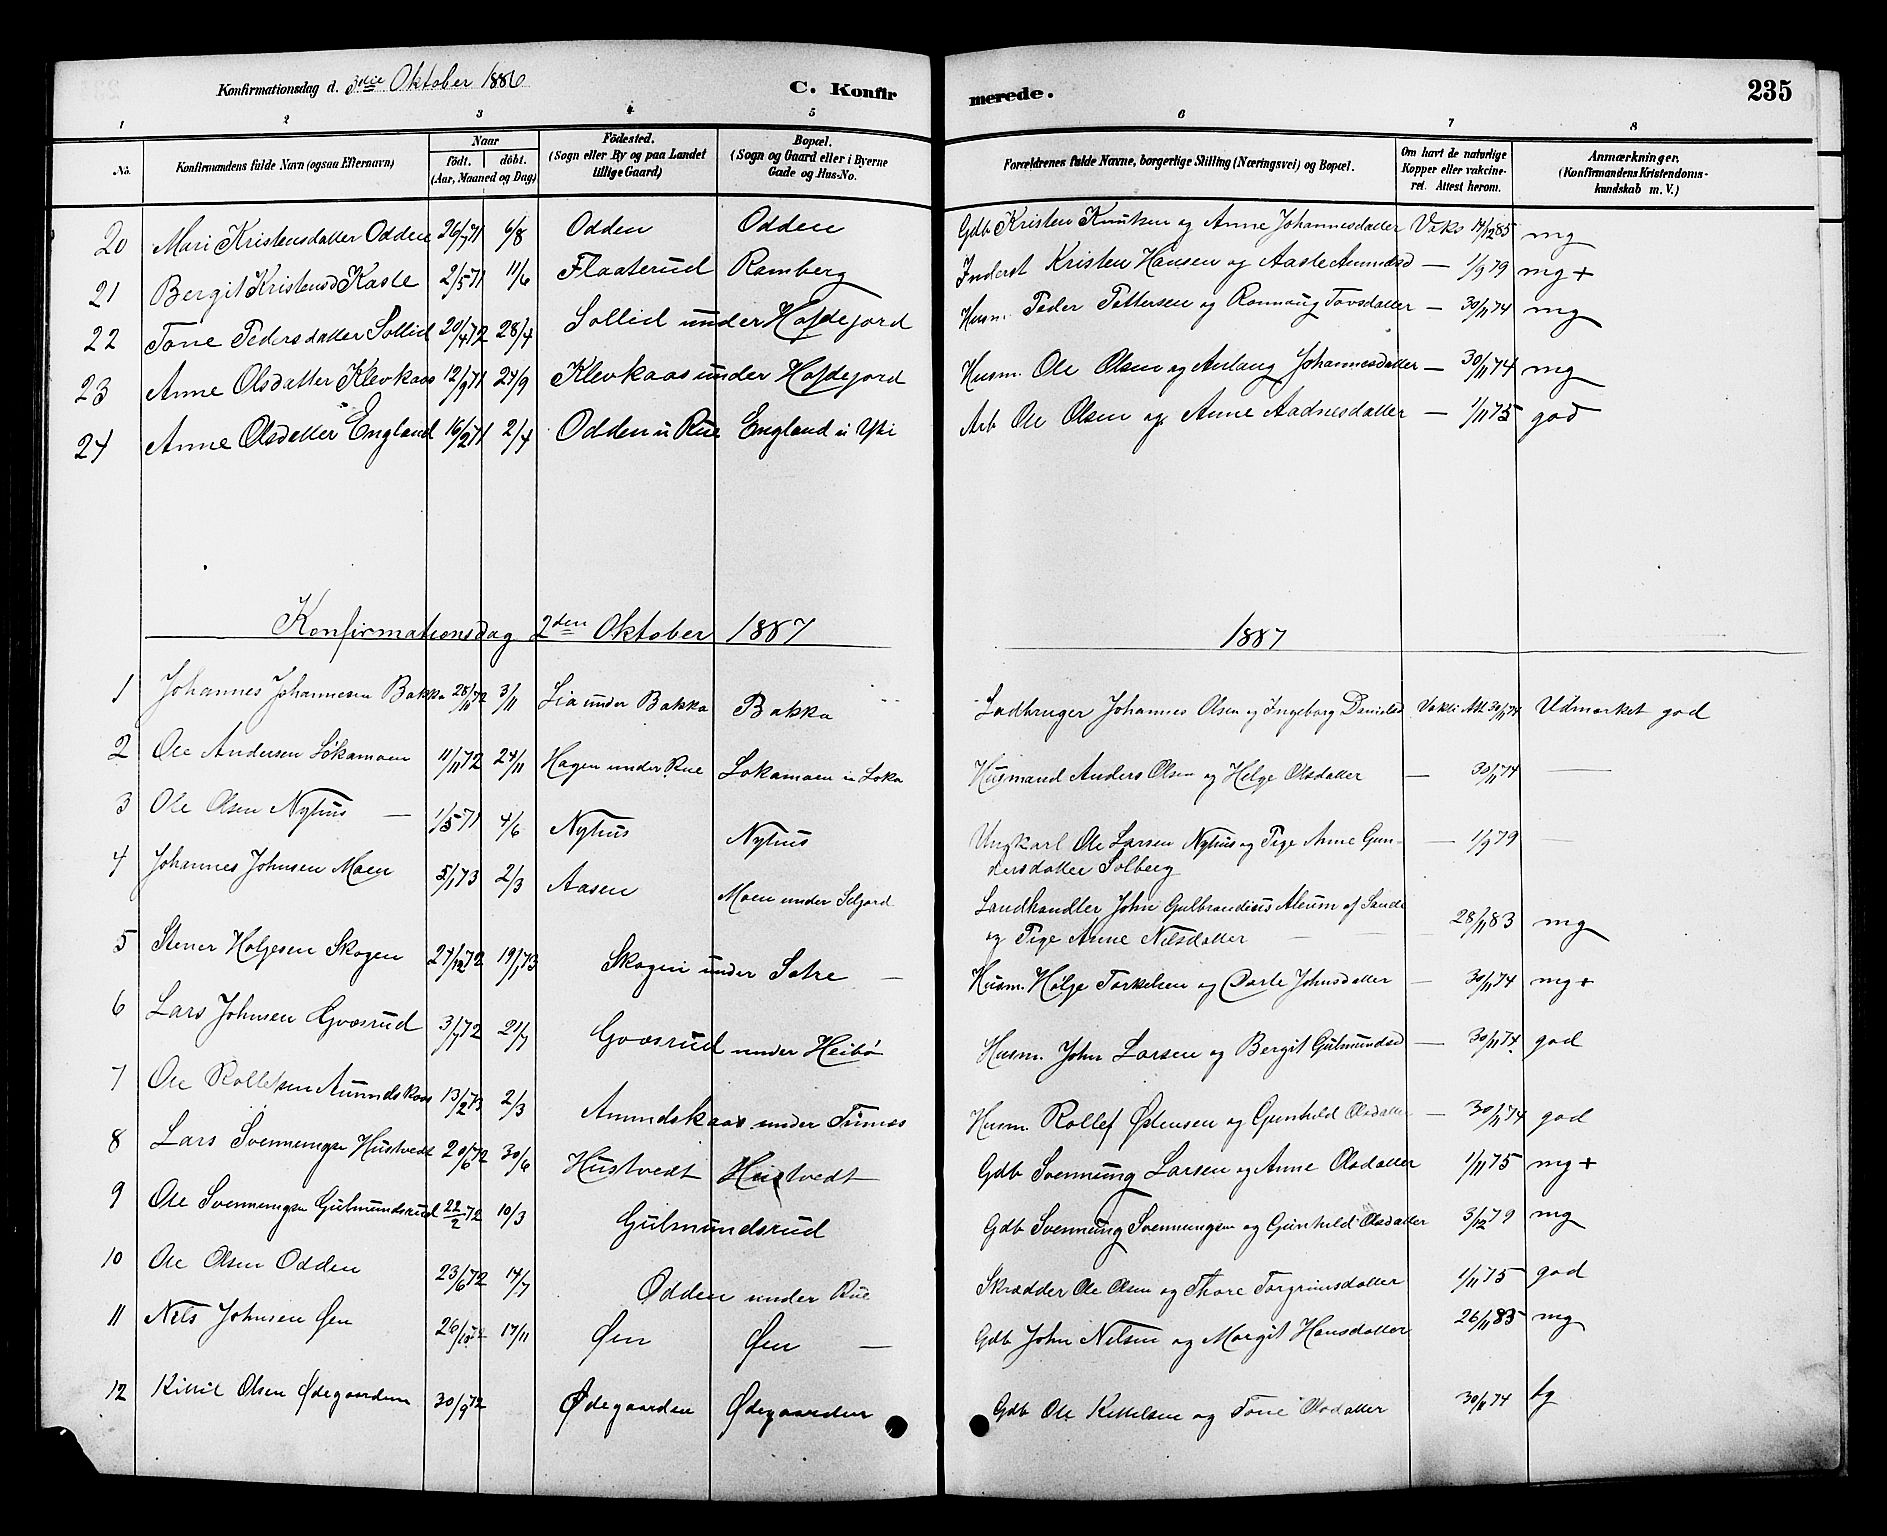 Konfirmationsdag d. 3die Oktober 1886
C. Konfirmerede.
235
1 2 3 4 5 6 7 8
No. Konfirmandens fulde Navn (ogsaa Efternavn) Naar födt. döbt. (Aar, Maaned og Dag) Födested. (Sogn eller By og paa Landet tillige Gaard) Bopæl. (Sogn og Gaard eller i Byerne Gade og Hus-No. Forældrenes fulde Navne, borgerlige Stilling (Næringsvei) og Bopæl. Om havt de naturlige Kopper eller vakcineret. Attest herom. Anmærkninger. (Konfirmandens Kristendomskundskab m. V.)
20 Mari Kristensdatter Odden 26/7 71 6/8 Odden Odden Gdb Kristen Knutsen og Anne Johannesdatter Vaks 14/12 85 mg
21 Bergit Kristensd Kasle 2/5 71 11/6 Flaaterud Ramberg Inderst Kristen Hansen og Aasle Amundsd — 1/9 79 mg+
22 Tone Pedersdatter Sollid 20/4 72 28/4 Sollid under Hofdejord Husm. Peder Pettersen og Rannaug Tovsdatter — 30/11 74 mg
23 Anne Olsdatter Klevkaas 12/9 71 24/9 Klevkaas under Hofdejord Husm. Ole Olsen og Aslaug Johannesdatter — 30/11 74 mg
24 Anne Olsdatter England 16/2 71 2/4 Odden u Rue England u Arb Ole Olsen og Anne Aadnesdatter — 1/11 75 god
Konfirmationsdag 2den Oktober 1887 1887
1 Johannes Johannesen Bakka 28/11 72 3/11 Lia under Bakka Bakka Ladbruger Johannes Olsen og Ingeborg Danielsd Vakci Att 30/11 74 Udmærket god
2 Ole Andersen Lökamoen 11/11 72 24/11 Hagen under Rue Lokamoen u Loka Husmand Anders Olsen og Helge Olsdatter — 30/11 74 —
3 Ole Olsen Nyhus — 1/5 71 4/6 Nyhus Nyhus Ungkarl Ole Larsen Nyhus og Pige Anne Gundersdatter Solberg — 1/9 79 —
4 Johannes Johnsen Moen 5/1 73 2/3 Aasen Moen under Seljord Landhandler John Gulbrandsen af Sande og Pige Anne Nilsdatter 28/11 83 mg
5 Stener Holjesen Skogen 27/12 72 19/1 73 Skogen under Satre — Husm. Holge Torkelsen og Johnsdatter — 30/11 74 mg+
6 Lars Johnsen Gvasrud 3/7 72 21/7 Gvasrud under Heibö Husm. John Larsen og Bergit Gulmundsd — 30/11 74 god
7 Ole Rollefsen Amundskaas 13/2 73 2/3 Amundskaas under Tinnes Husm. Rollef Østensen og Gunhild Olsdatter — 30/11 74 god
8 Lars Svenningsen Hustvedt 20/6 72 30/6 Hustvedt Hustvedt Gdb Svennung Larsen og Anne Olsdatter 1/11 75 mg+
9 Ole Svennungsen Gulmundsrud 22/2 72 10/3 Gulmundsrud Gdb Svennung Svennungsen og Gunhild Olsdatter 3/12 79 mg
10 Ole Olsen Odden 23/6 72 14/7 Odden under Rue Skrædder Ole Olsen og Thore Torgrimsdatter 1/11 75 god
11 Nils Johnsen Øen 26/10 72 17/11 Øen Øen — Gdb John Nilsen og Margit Hansdatter 26/11 83 mg
12 Kittil Olsen Ødegaarden 30/9 72 Ødegaarden Ødegaarden Gdb Ole Kittelsen og Tone Olsdatter 30/11 74 tg